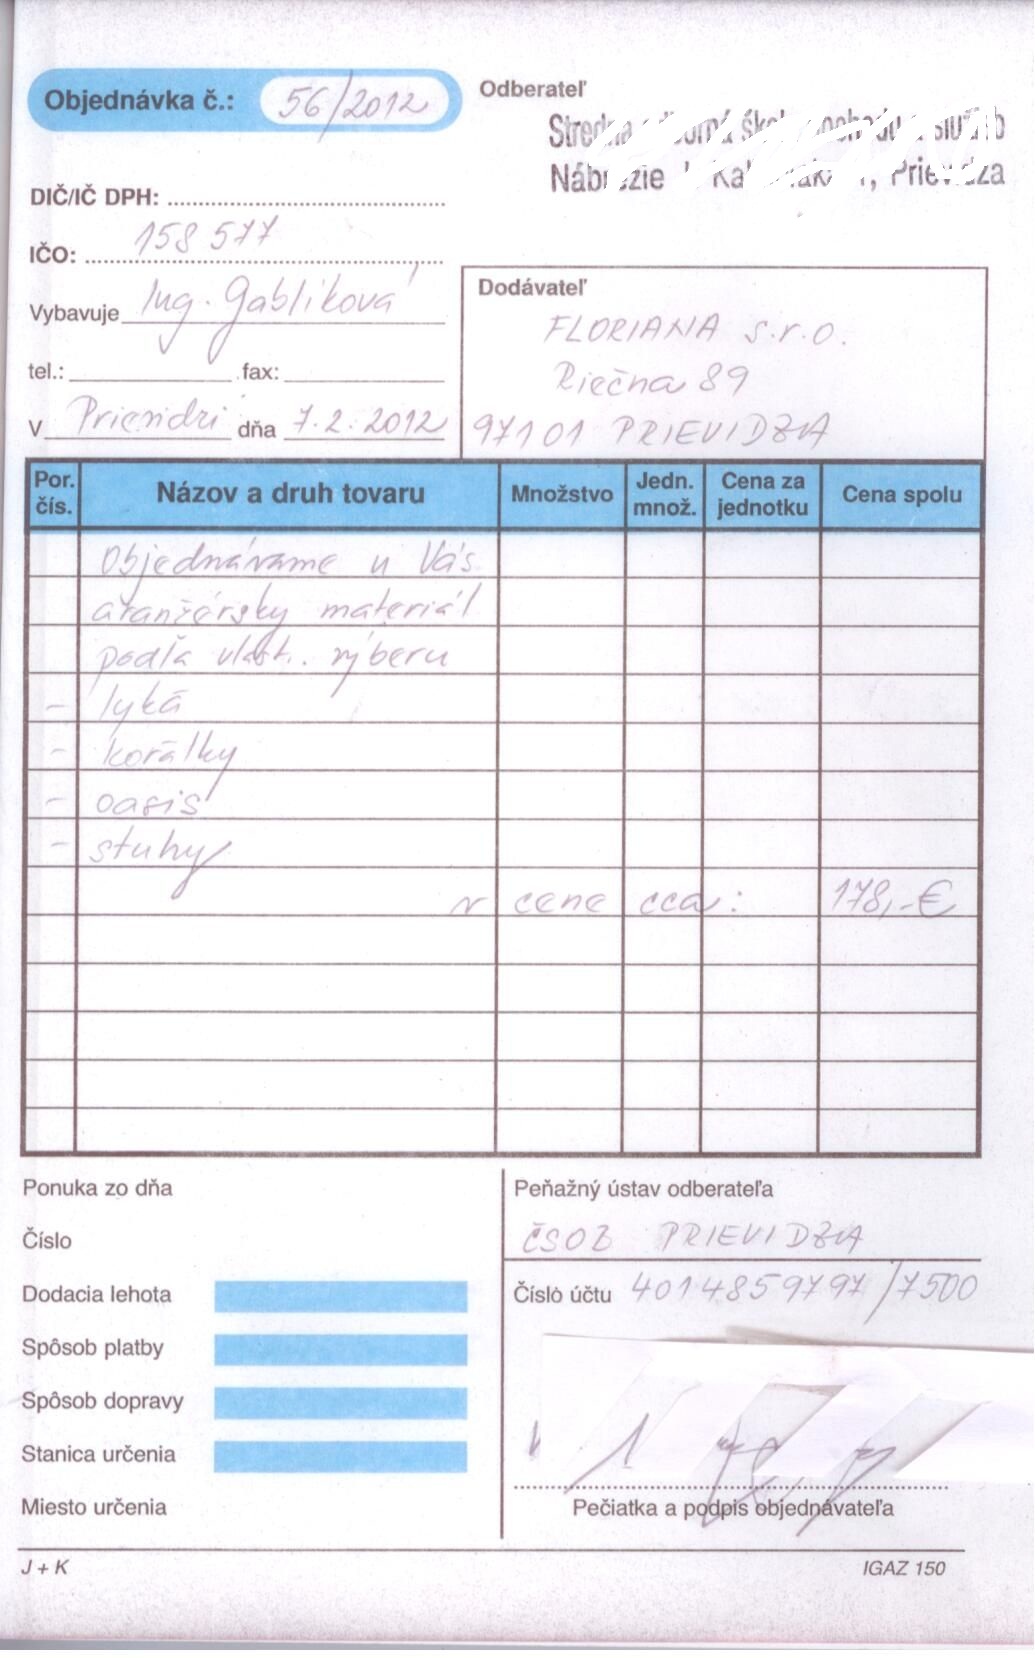 Objednávka č.: 56/2012
Odberateľ
Stredná odborná škola obchodu a služieb
Nábrežie Prievidza
DIČ/IČ DPH:
IČO: 158 577
Vybavuje Ing. Gablíková
tel.: fax:
V Prievidzi dňa 7.2.2012
Dodávateľ
FLORIANA s.r.o.
Riečna 89
97101 PRIEVIDZA
Por. čís. Názov a druh tovaru Množstvo Jedn. množ. Cena za jednotku Cena spolu
Objednávame u Vás
aranžérsky materiál
podľa vlast. výberu
- lyká
- korálky
- oasis
- stuhy
v cene cca: 178,-€
Ponuka zo dňa
Číslo
Dodacia lehota
Spôsob platby
Spôsob dopravy
Stanica určenia
Miesto určenia
Peňažný ústav odberateľa
ČSOB PRIEVIDZA
Číslo účtu 4014859797/7500
Pečiatka a podpis objednávateľa
J + K
IGAZ 150